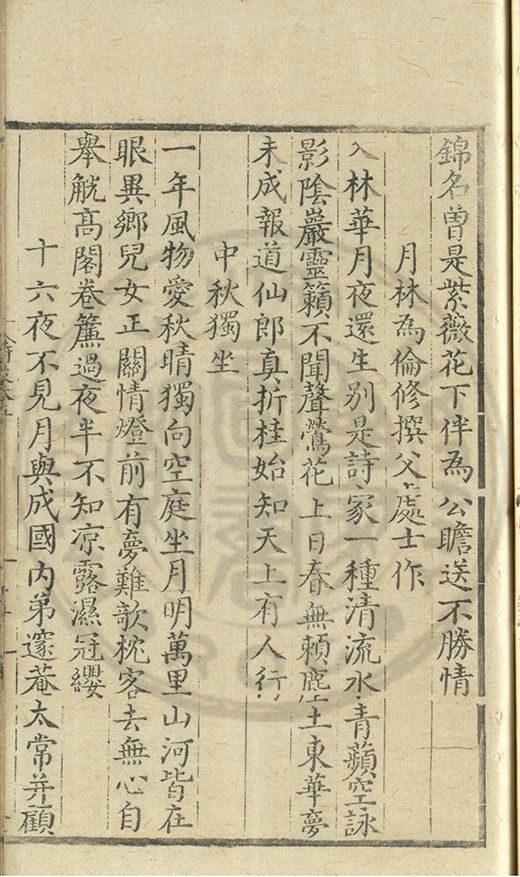 錦名曾是紫薇花下伴為公瞻送不勝情
月林為倫修撰父處士作
入林華月夜還生別是詩家一種清流水青蘋空詠
影陰巖靈籟不聞聲鶯花上日春無賴塵土東華夢
未成報道仙郎真折桂始知天上有人行
中秋獨坐
一年風物愛秋晴獨向空庭坐月明萬里山河皆在
眼異鄉兒女正關情燈前有夢難歌枕客去無心自
舉觥高閣卷簾過夜半不知凉露濕冠纓
十六夜不見月與成國內弟邃菴太常并顧